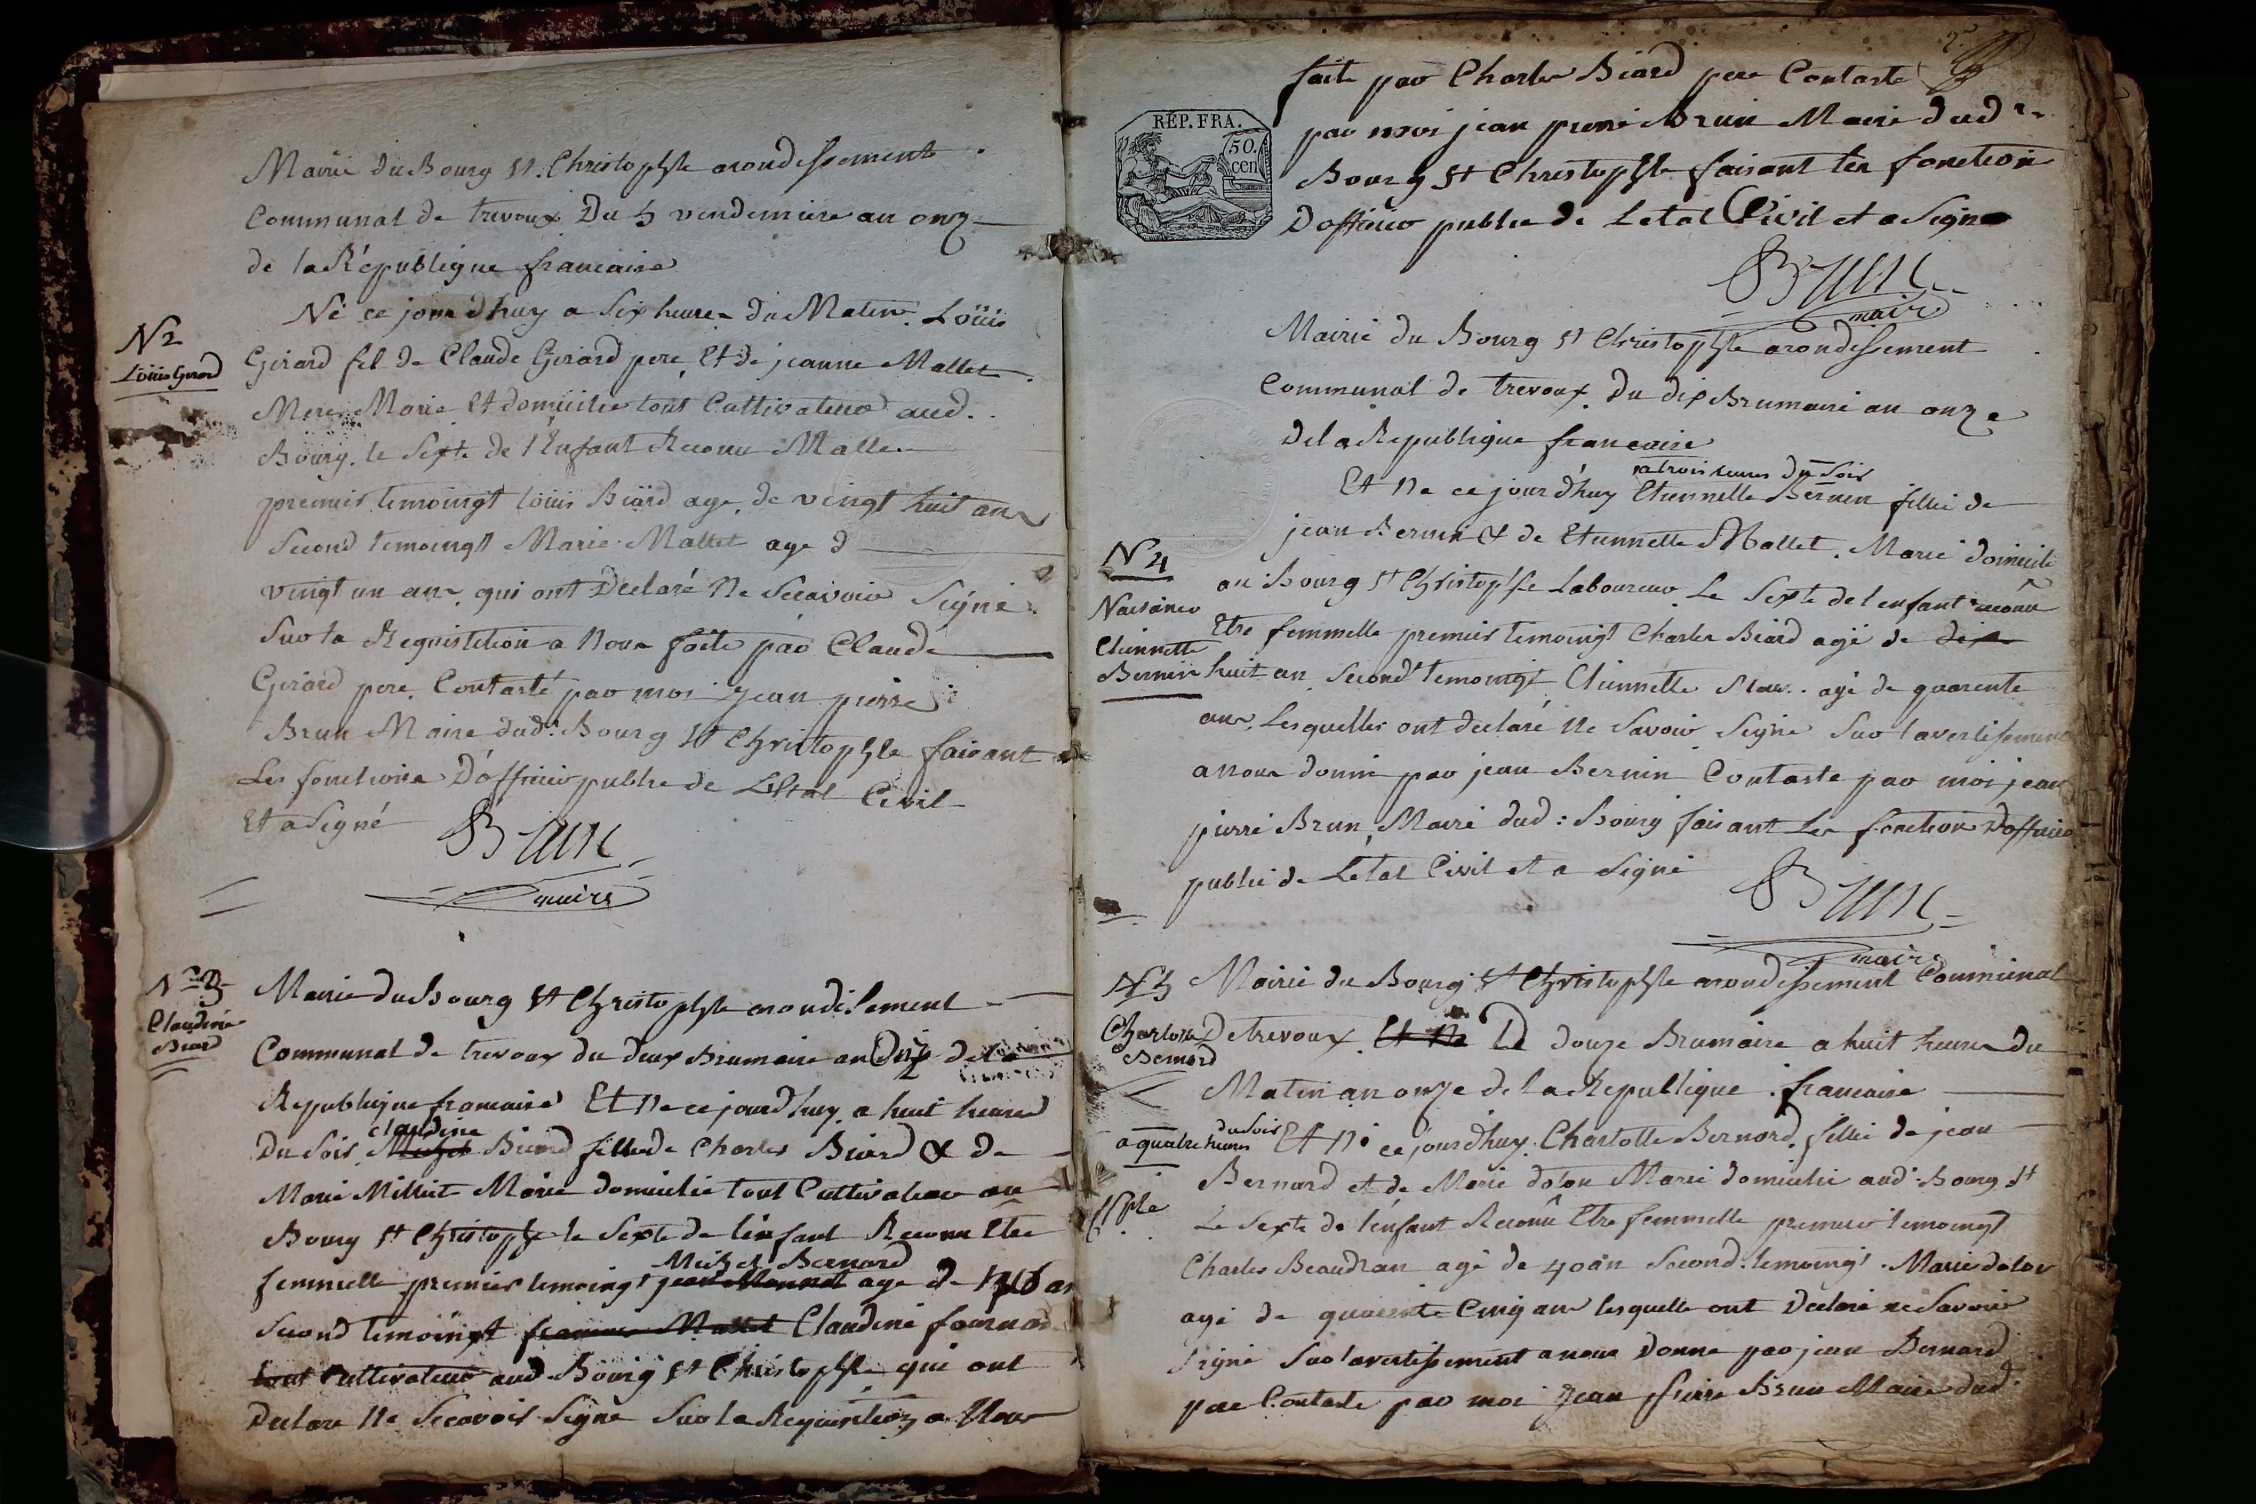 Mairie du Bourg St. Christophle arondissement
Communal de trevoux Du 5 vendemiere an onz
de la République francaise
N 2
Loüis Girard
Né ce jourdhuy a Six heures du Matin. Loüis
Girard fil de Claude Girard pere, Et de jeanne Mallet
Mere Marié Et domicilie tout Cultivateur aud.
Bourg. le Sexte de l'Enfant Reconu Malle
premier temoingt loüis Biard age, de vingt huit ans
Second temoingt Marie Mallet age d
vingt un ans, qui ont Declaré Ne Scavoir Signé
Sur la Requisition a Nous faite par Claude
Girard pere, Contasté par moi jean pierre
Brun Maire dud: Bourg St Christophle faisant
Les fonctions D'officier public de L'Etat Civil
Et a Signé
Brun
maire
N° 3
Claudine
Biard
Mairie du Bourg St Christophle arondisement
Communal de trevoux du deux Brumaire an de la
Republique francaise Et Ne ce jourdhuy a huit heures
claudine
Du Soir Biard fille de Charles Biard & de
Marie Milliet Marie domicilié tout Cultivateur au
Bourg St Christophle le Sexte de l'enfant Reconu Etre
Michel Bernard
femmelle premier temoingt age de an
Second temoingt Claudine
tout Cultivateur aud Bourg St Christophle qui ont
Declare Ne Scavoir Signé Sur la Requisition a Nous
2
faite par Charles Biard pere Contaste
REP. FRA.
50.
cen
par moi jean pierre Brun Maire dud
Bourg St Christophle faisant les fonction
D'officier public de Letat Civil et a Signe
Brun
maire
Mairie du Bourg St Christophle arondissement
Communal de trevoux. Du dix Brumaire an onze
De la Republique francaise
a trois heures du Soir
Et Ne ce jourd'huy Etiennette Bernin fillie de
jean Bernin & de Etiennette Mallet. Marié domicilé
N 4
Naisance
Etiennette
Bernin
au Bourg St Christophle Laboureur Le Sexte de l enfant reconu
Etre femmelle premier temoingt Charles Biard agé de dix
huit an Second temoingt Etiennette agé de quarente
ans, Lesquelles ont declaré Ne Savoir Signé Sur lavertisement
a nous donné par jean Bernin Contaste par moi jean
pierre Brun, Maire dud: Bourg faisant Les fonction D'officier
public de Létat Civil et a Signé
Brun
maire
N 5
Charlotte
Bernard
Mairie du Bourg St Christophle arondissement Communal
De trevoux. Et Ne Le douze Brumaire a huit heures du
Matin an onze de la Republique francaise
du Soir
a quatre heures
Et Né ce jourdhuy. Charlotte Bernard. fillie de jean
Bernard et de Marie dolon Marié domicilié aud: Bourg St
phle
Le Sexte de l'enfant Reconu Etre femmelle premier temoingt
Charles Beaudran agé de 40 an Second temoingt Marie
agé de quarente Cinq ans lesquelle ont Déclaré ne Savoir
Signé Sur lavertissement a nous Donné par jean Bernard
pere Contaste par moi jean pierre Brun Maire dud